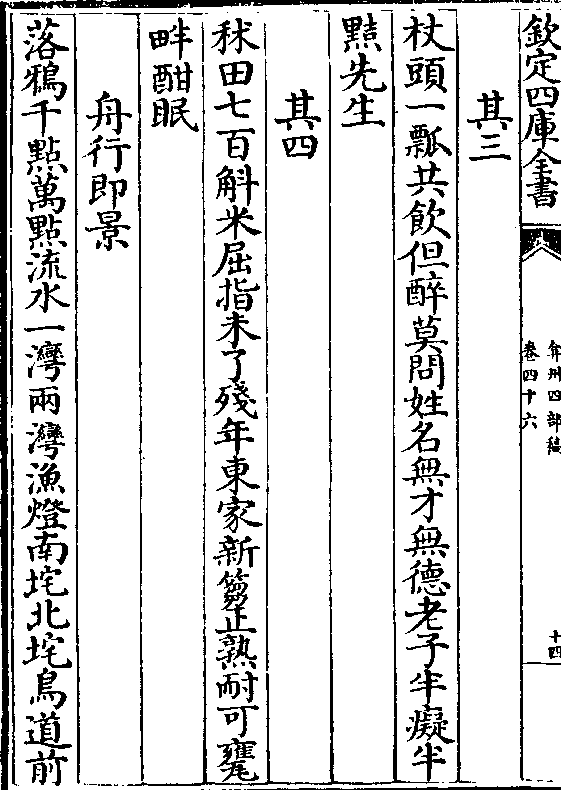 欽定四庫全書
弇州四部稿
卷四十六
十四
其三
杖頭一瓢共飲但醉莫問姓名無才無德老子半癡半
黠先生
其四
秫田七百斛米屈指未了殘年東家新篘正熟耐可甕
畔酣眠
舟行即景
落鴉千點萬點流水一灣兩灣漁燈南垞北垞鳥道前